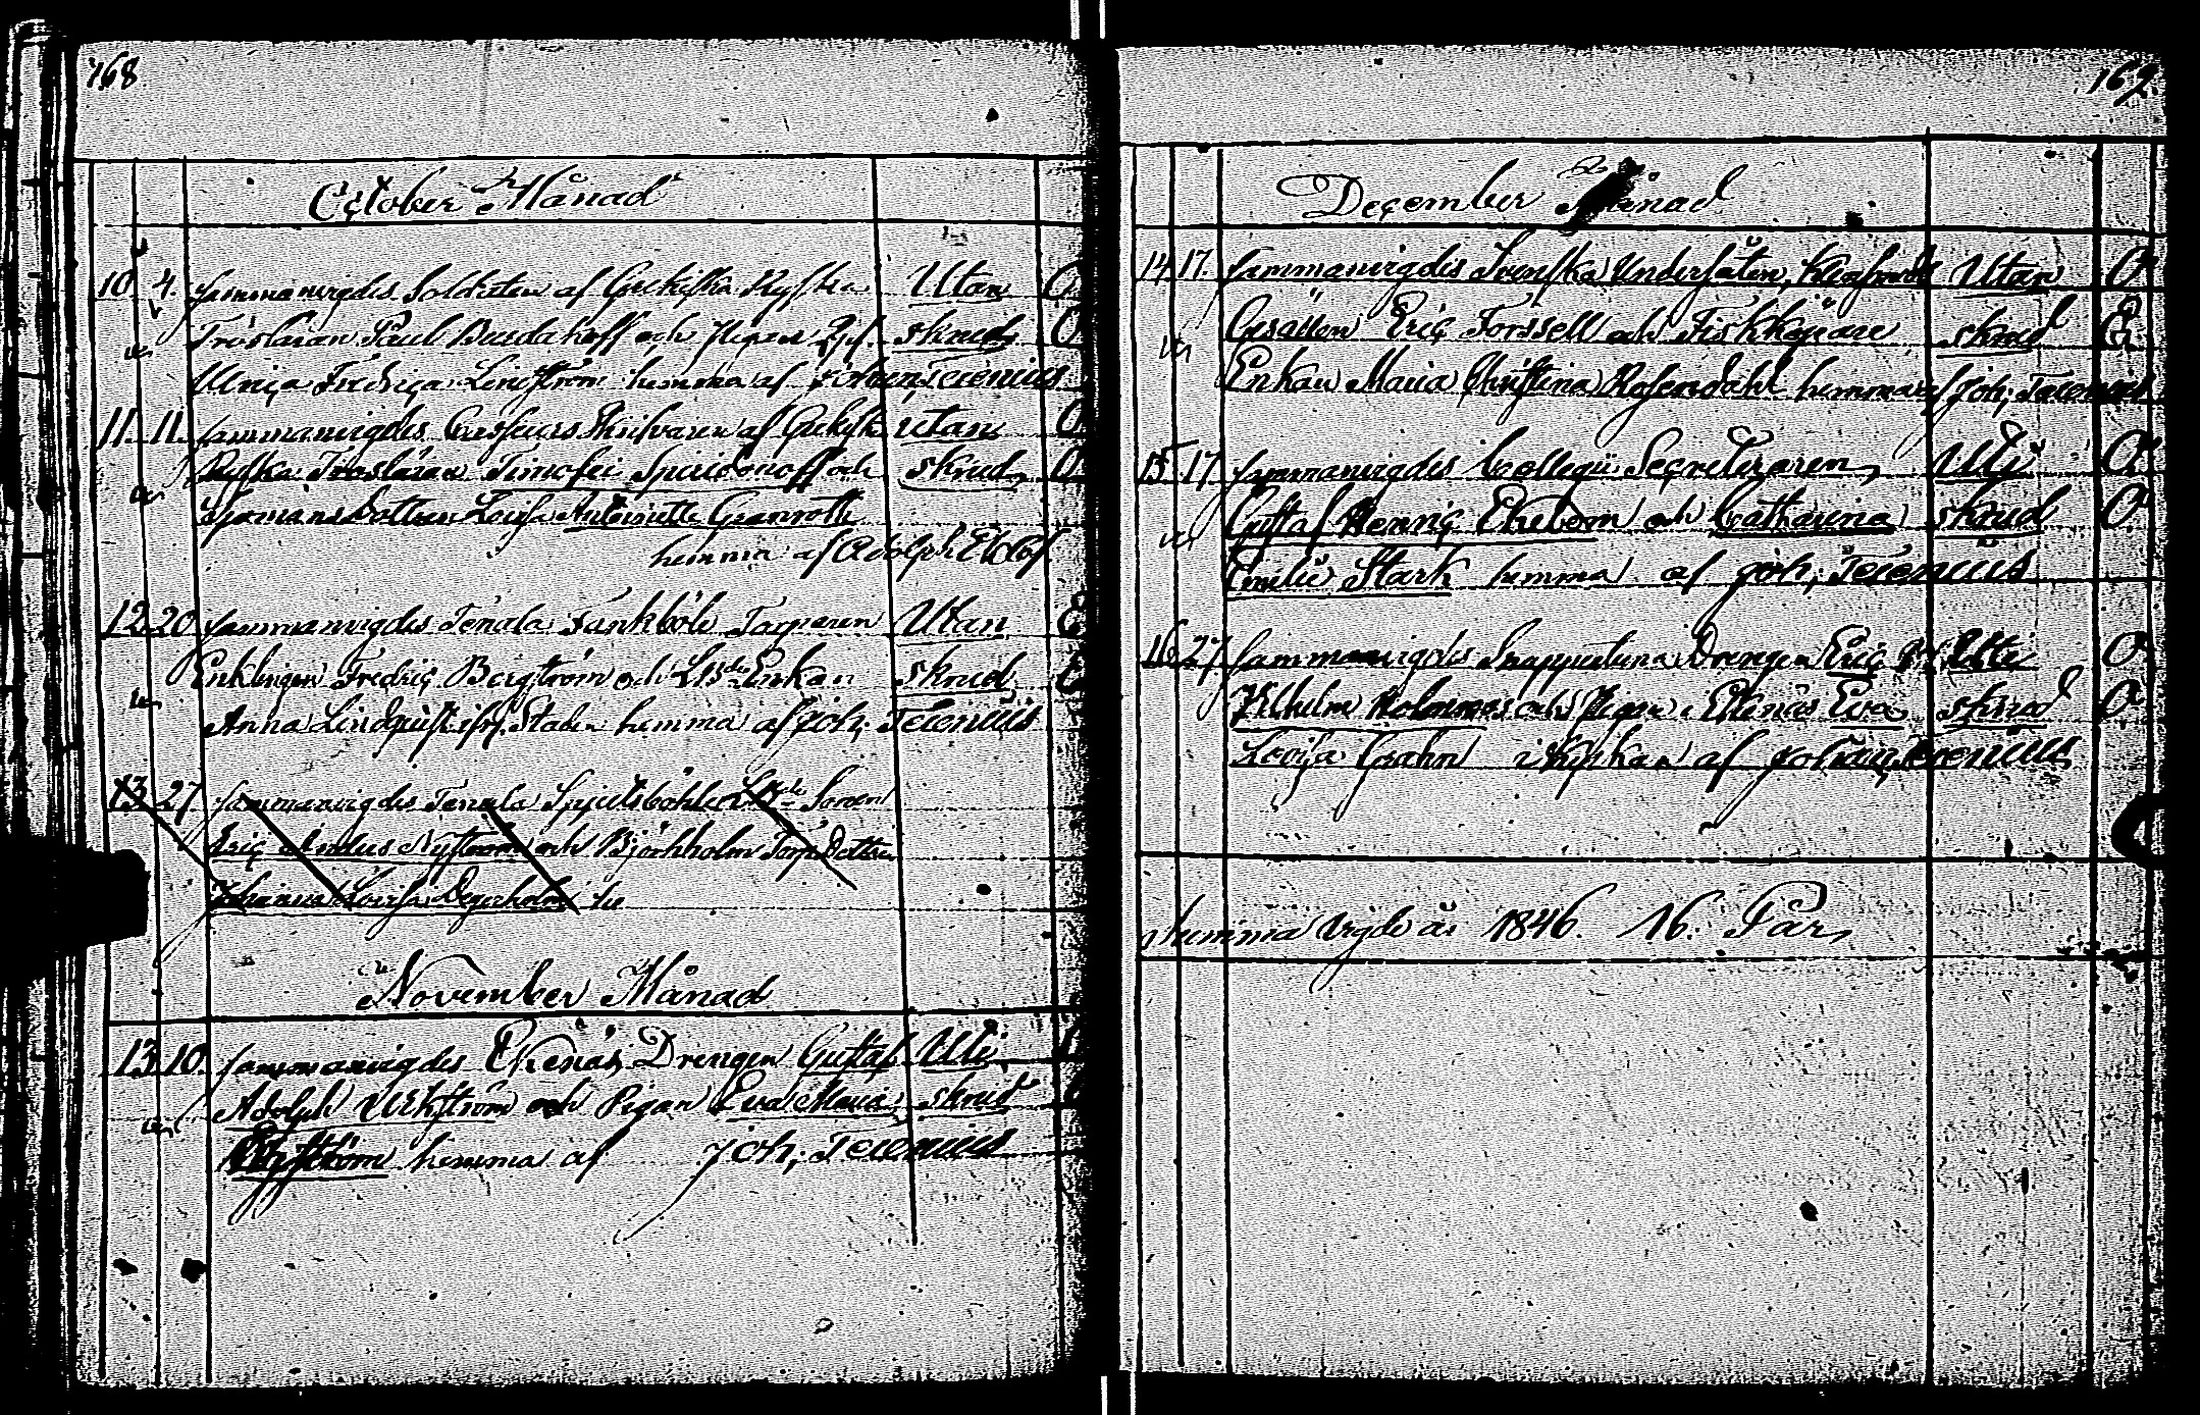 168
October Månad
10. 4. sammanvigdes Soldaten af Grekiska Ryska Utan O
Trosläran Paul Burdakoff och Pigan skrud O
Ulrica Fredrica Lindström hemma af Johan Terenius
11. 11. sammanvigdes Skrifvaren af Grekisk Utan O
Ryska Trosläran Timofei Spiridonoff och skrud O
Sjömansdottren Lovisa Antoinette Granroth
hemma af Adolph Ekelöf
12. 20. sammanvigdes Tenala Fankböle Torparen Utan E
Enklingen Fredric Bergström och Enkan skrud E
Anna Lindquist ifr. Staden hemma af Joh; Terenius
13. 27. sammanvigdes Tenala Spjutsböhle Sonen
Eric Nyström och Björkholm Torp. Dottren
Johanna Lovisa Degerholm
November Månad
13. 10. sammanvigdes Ekenäs Drengen Gustaf Uti
Adolph Wikström och Pigan Eva Maria skrud
Nyström hemma af Joh; Terenius
169.
December Månad
14. 17. sammanvigdes Svenska Undersåten, Utan O
Gesällen Eric Forssell och Fiskköpare skrud E
Enkan Maria Christina Rosendahl hemma af Joh; Terenius
15. 17. sammanvigdes Collegii Secreteraren, Uti O
Gustaf Henric Ekebom och Catharina skrud O
Emilie Stark hemma af Joh; Terenius
16. 27. sammanvigdes Snappertuna Drengen Eric Uti O
Wilhelm Holmroos och Pigan i Ekenäs Eva skrud O
Lovisa Grahn i Kyrkan af Johan Terenius
Summa Vigde år 1846. 16. Par,